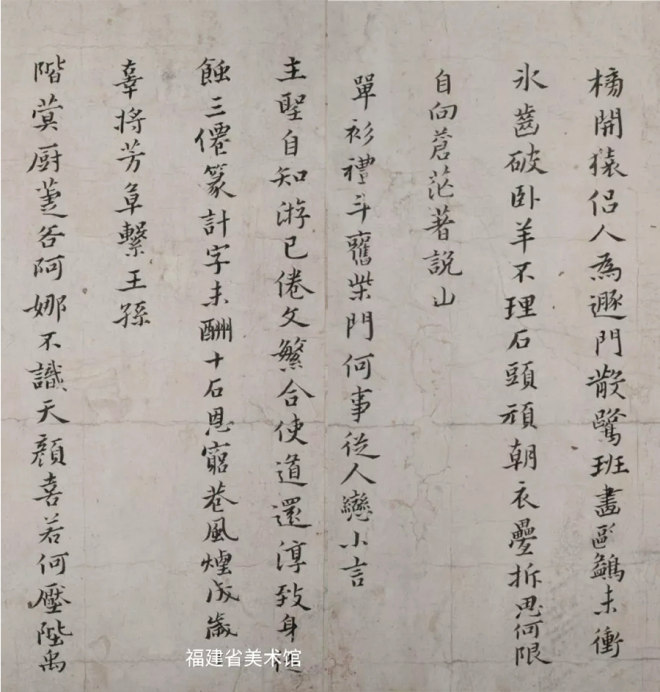 開猿侶人為遯門散鷺班畫鷁未衝
氷齒破卧羊不理石頭頑朝衣疊拆思何限
自向蒼茫著説山
單衫禮斗舊柴門何事從人戀小言
主聖自知游已倦文繁合使道還淳致身從
蝕三僊篆計字未酬十石恩窮巷風煙成歲
辜將芳草繫王孫
階蓂厨萐各阿娜不識天顏喜若何壓陛禹
福建省美术馆